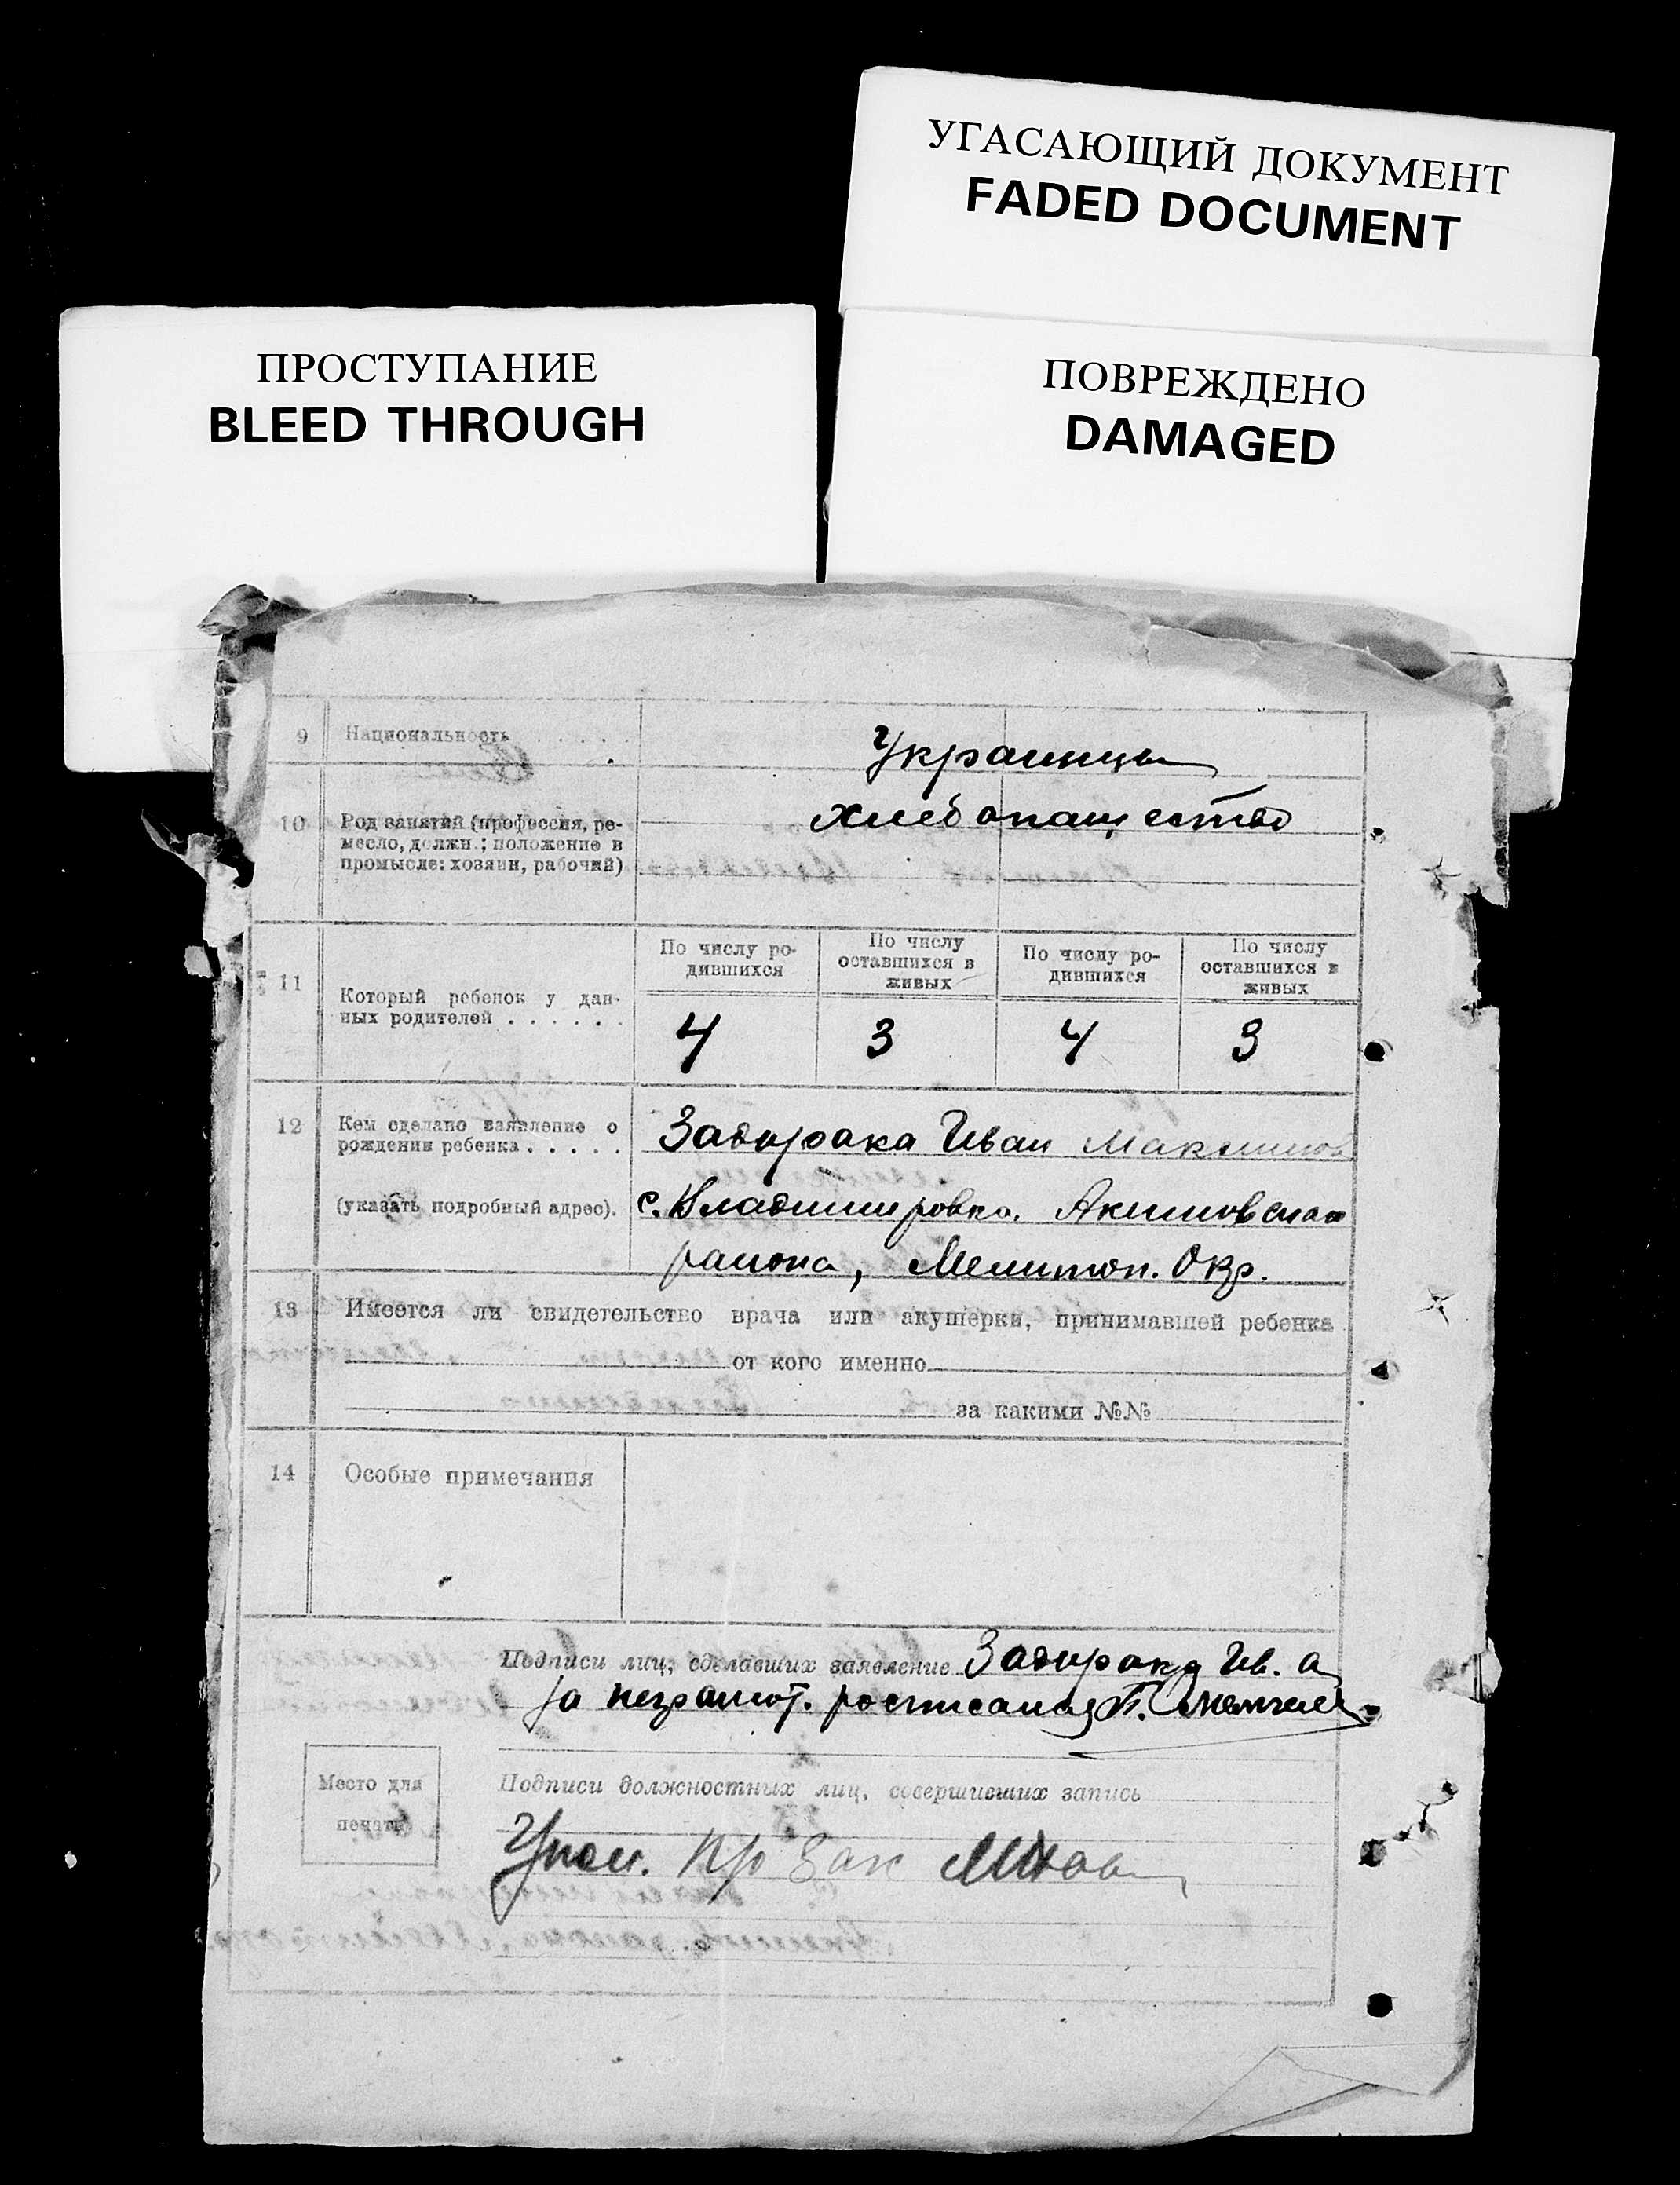 УГАСАЮЩИЙ ДОКУМЕНТ
FADED DOCUMENT
ПРОСТУПАНИЕ
BLEED THROUGH
ПОВРЕЖДЕНО
DAMAGED
9 Национальность . . . . . . Украинцы
10 Род занятий (профессия, ре-
месло, должн.; положение в
промысле: хозяин, рабочий)
хлебопашество
11 Который ребенок у дан-
ных родителей . . . . . .
По числу ро-
дившихся
По числу
оставшихся в
живых
По числу ро-
дившихся
По числу
оставшихся в
живых
4 3 4 3
12 Кем сделано заявление о
рождении ребенка . . . . .
(указать подробный адрес).
Задирака Иван Максимов
с. Владимировка, Акимовская
района, Мелитоп. Окр.
13 Имеется ли свидетельство врача или акушерки, принимавшей ребенка
от кого именно
за какими №№
14 Особые примечания
Подписи лиц, сделавших заявление Задирака Ив. а
за неграмот. росписался П.
Место для
печати
Подписи должностных лиц, совершивших запись